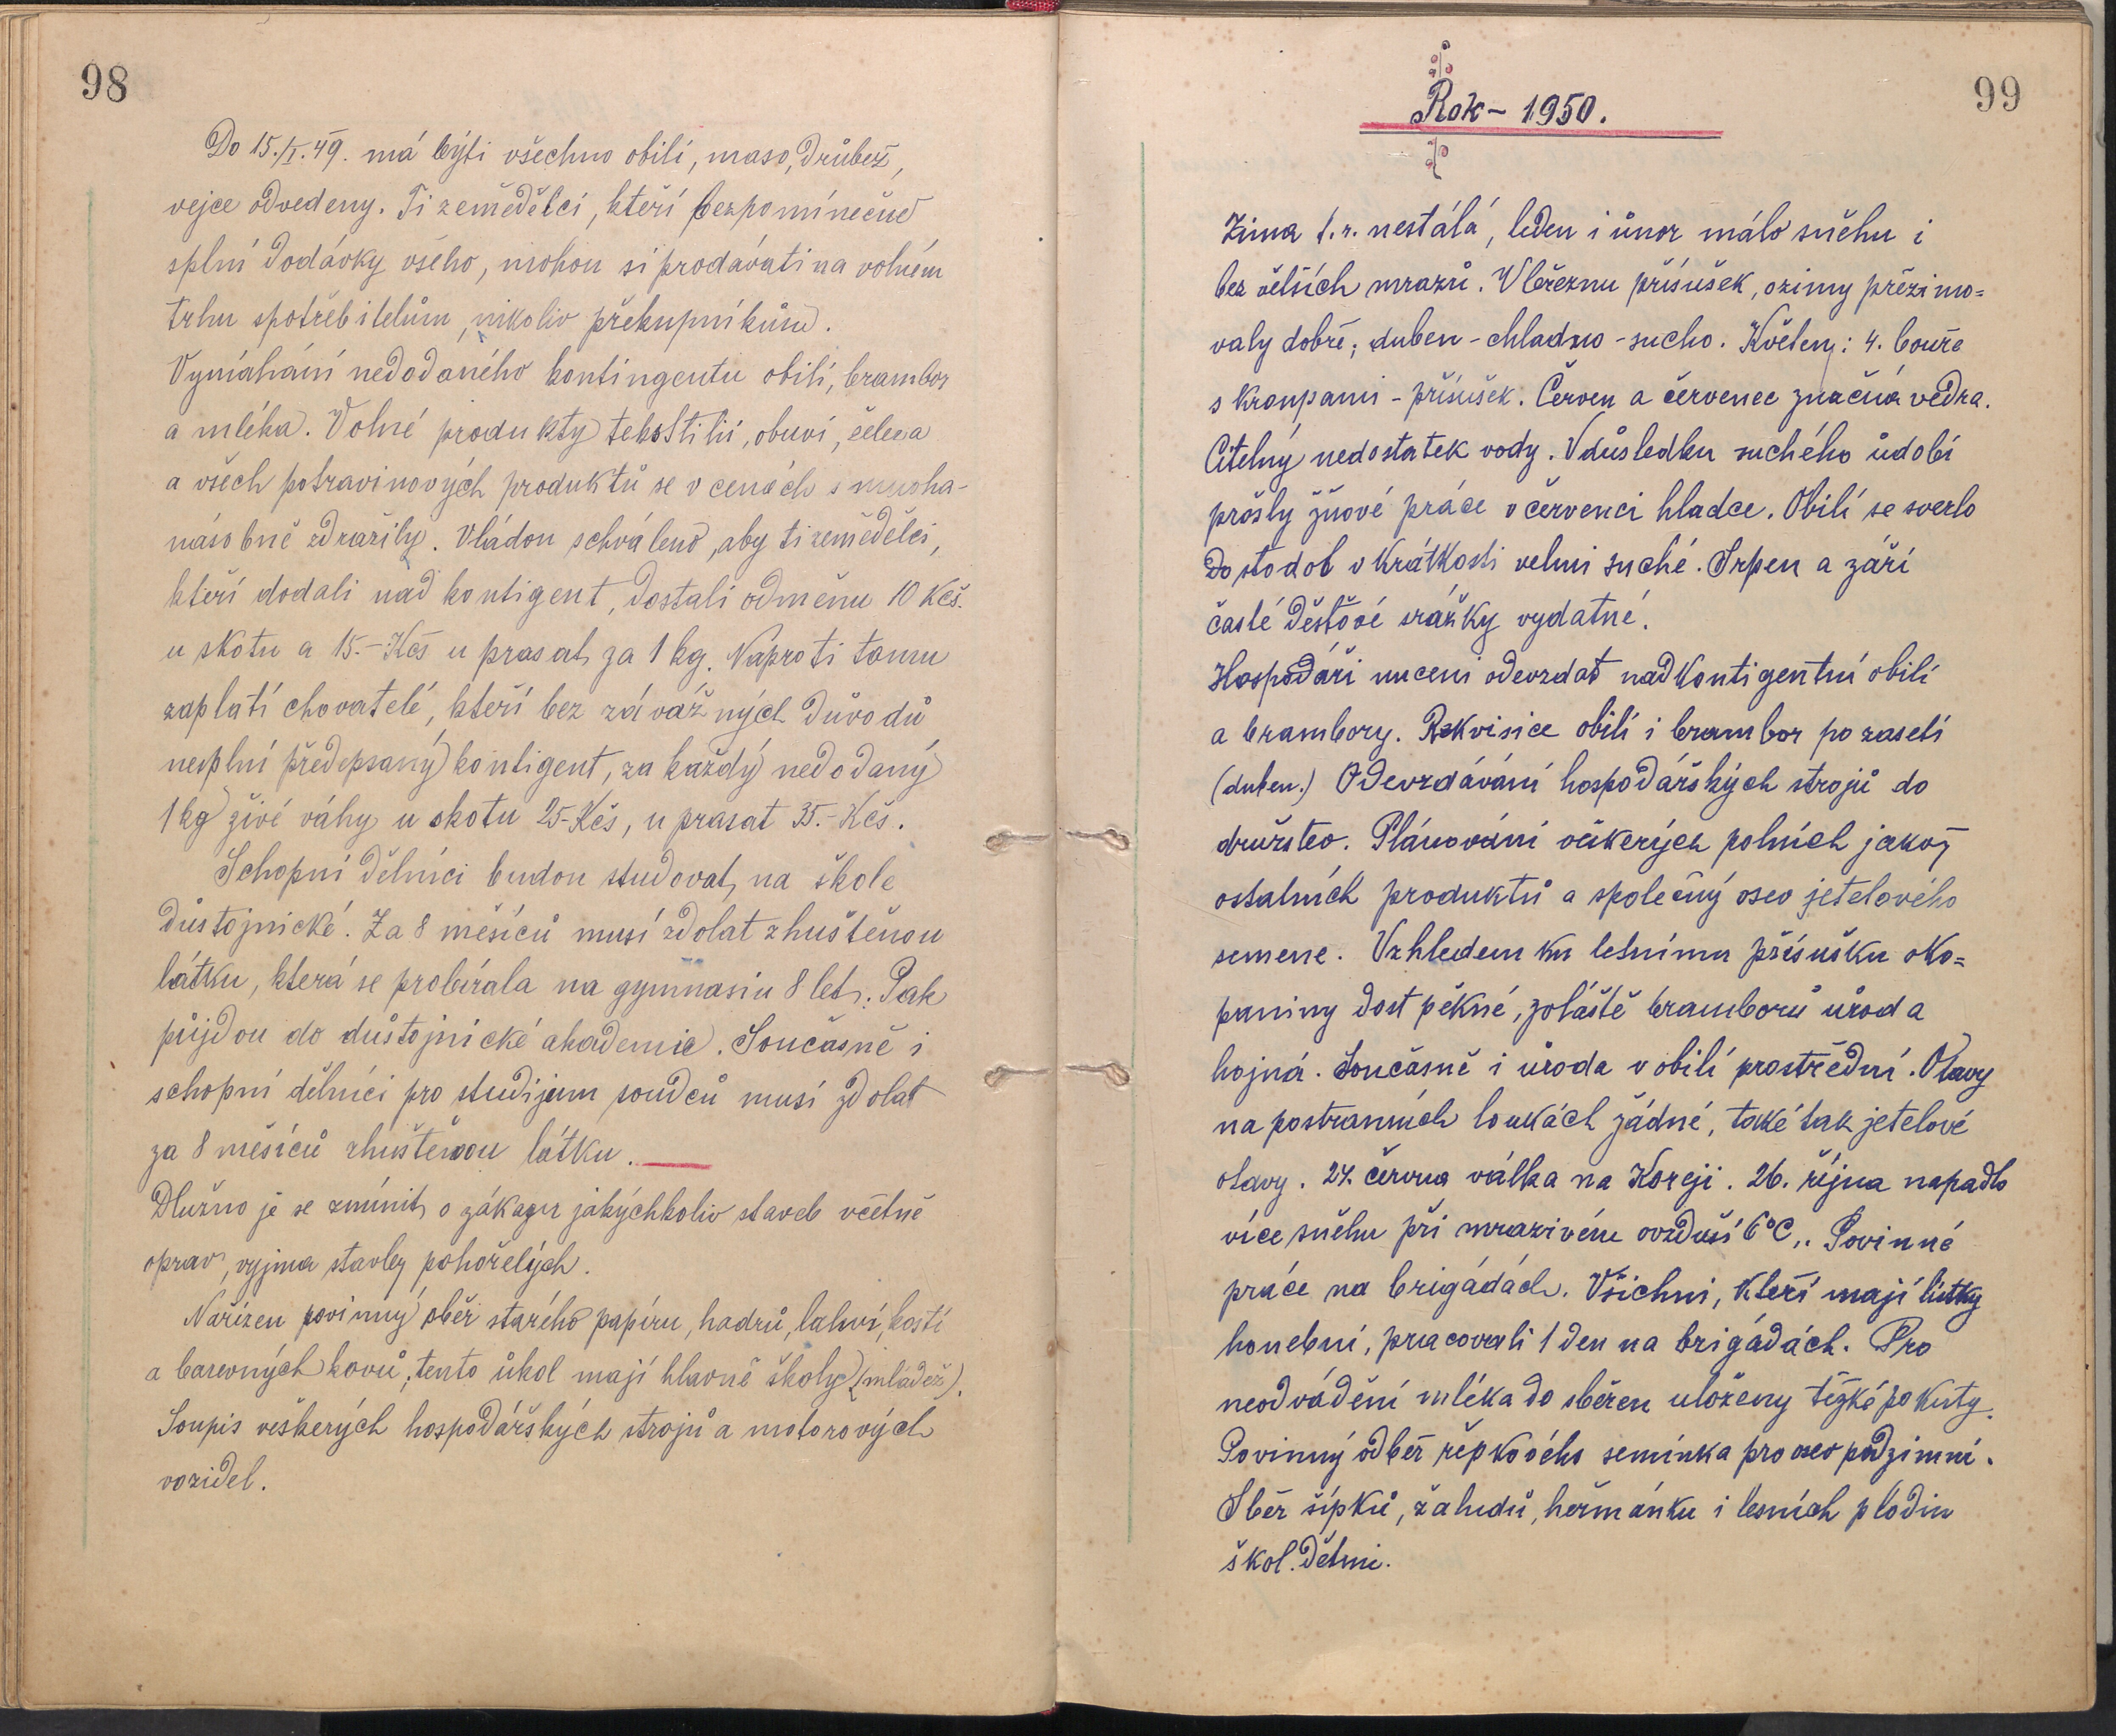 98
Do 15./I. 49. má býti všechno obilí, maso, drůbež,
vejce odvedeny. Ti zemědělci, kteří bezpomínečně
splní dodávky všeho, mohou si prodávati na volném
trhu spotřebitelům, nikoliv překupníkům.
Vymáhání nedodaného kontingentu obilí, brambor
a mléka. Volné produkty tekstilií, obuvi,
a všech potravinových produktů se v cenách s mnoha-
násobně zdražily. Vládou schváleno, aby ti zemědělci,
kteří dodali nad kontigent, dostali odměnu 10 Kčš.
u skotu a 15.- Kčs u prasat za 1 kg. Naproti tomu
zaplatí chovatelé, kteří bez závážných důvodů
neplní předepsaný kontigent, za každý nedodaný
1 kg živé váhy u skotu 25- Kčs, u prasat 35.- Kčs.
Schopní dělníci budou studovat na škole
důstojnické. Za 8 měsíců musí zdolat zhuštěnou
látku, která se probírala na gymnasiu 8 let. Pak
půjdou do důstojnické akademie. Současně i
schopní dělníci pro studijum soudců musí zdolat
za 8 měsíců zhuštěnou látku.
Dlužno je se zmínit o zákazu jakýchkoliv staveb včetně
oprav, vyjma stavby pohořelých.
Nařízen povinný sběr starého papíru, hadrů, lahví, kostí
a barevných kovů; tento úkol mají hlavně školy (mládež).
Soupis veškerých hospodářských strojů a motorových
vozidel.
99
Rok - 1950.
Zima t. r. nestálá, leden i únor málo sněhu i
bez větších mrazů. V březnu přísušek, ozimy přezimo=
valy dobře; duben - chladno - sucho. Květen: 4. bouře
s kroupami - přísušek. Červen a červenec značná vedra.
Citelný nedostatek vody. V důsledku suchého údobí
prošly žňové práce v červenci hladce. Obilí se svezlo
do stodol v krátkosti velmi suché. Srpen a září
časté děšťové srážky vydatné.
Hospodáři nuceni odevzdat nadkontigentní obilí
a brambory. Rekvisice obilí i brambor po zasetí
(duben.) Odevzdávání hospodářských strojů do
družstev. Plánování veškerých polních jakož
ostatních produktů a společný osev jetelového
semene. Vzhledem ku letnímu přísušku oko=
paniny dost pěkné, zvláště bramborů úroda
hojná. Současně i úroda v obilí prostřední. Otavy
na postranních loukách žádné, také tak jetelové
otavy. 27. června válka na Koreji. 26. října napadlo
více sněhu při mrazivém ovzduší 6°C.. Povinné
práce na brigádách. Všichni, kteří mají lístky
honební, pracovali 1 den na brigádách. Pro
neodvádění mléka do sběren uloženy těžké pokuty.
Povinný odběr řepkového semínka pro osev podzimní.
Sběr šípků, žaludů, heřmánku i lesních plodin
škol. dětmi.